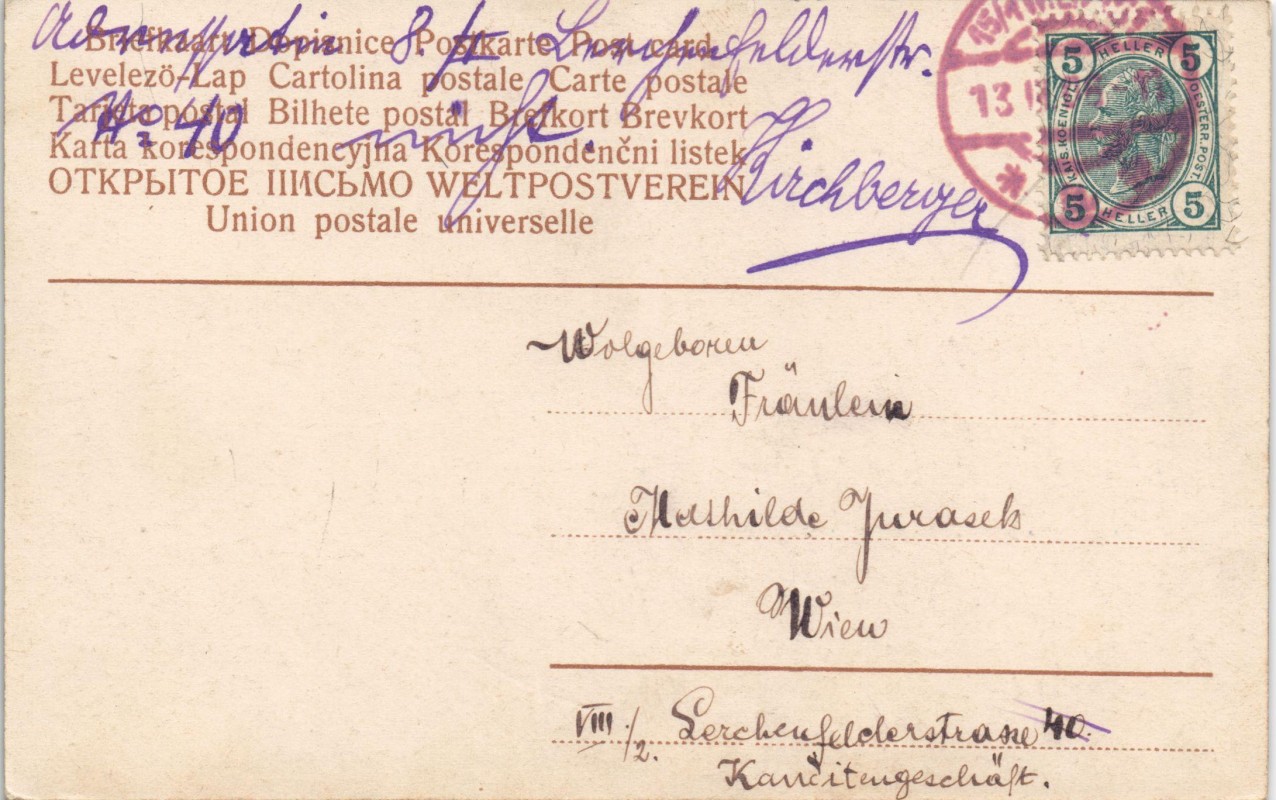 Adressatin 8./I Lerchenfelderstr.
No 40 nicht.
Kirchberger
Briefkaart Dopisnice Postkarte Post card
Levelező-Lap Cartolina postale Carte postale
Tarjeta postal Bilhete postal Brefkort Brevkort
Karta korespondencyjna Korespondenčni listek
ОТКРЫТОЕ ПИСЬМО WELTPOSTVEREIN
Union postale universelle
15/1 WIEN
13
5 HELLER 5
KAIS. KOENIGL. OESTERR. POST.
5 HELLER 5
Wolgeboren
Fräulein
Mathilde Jurasek
Wien
VIII./2. Lerchenfelderstrasse 40.
Kanditengeschäft.